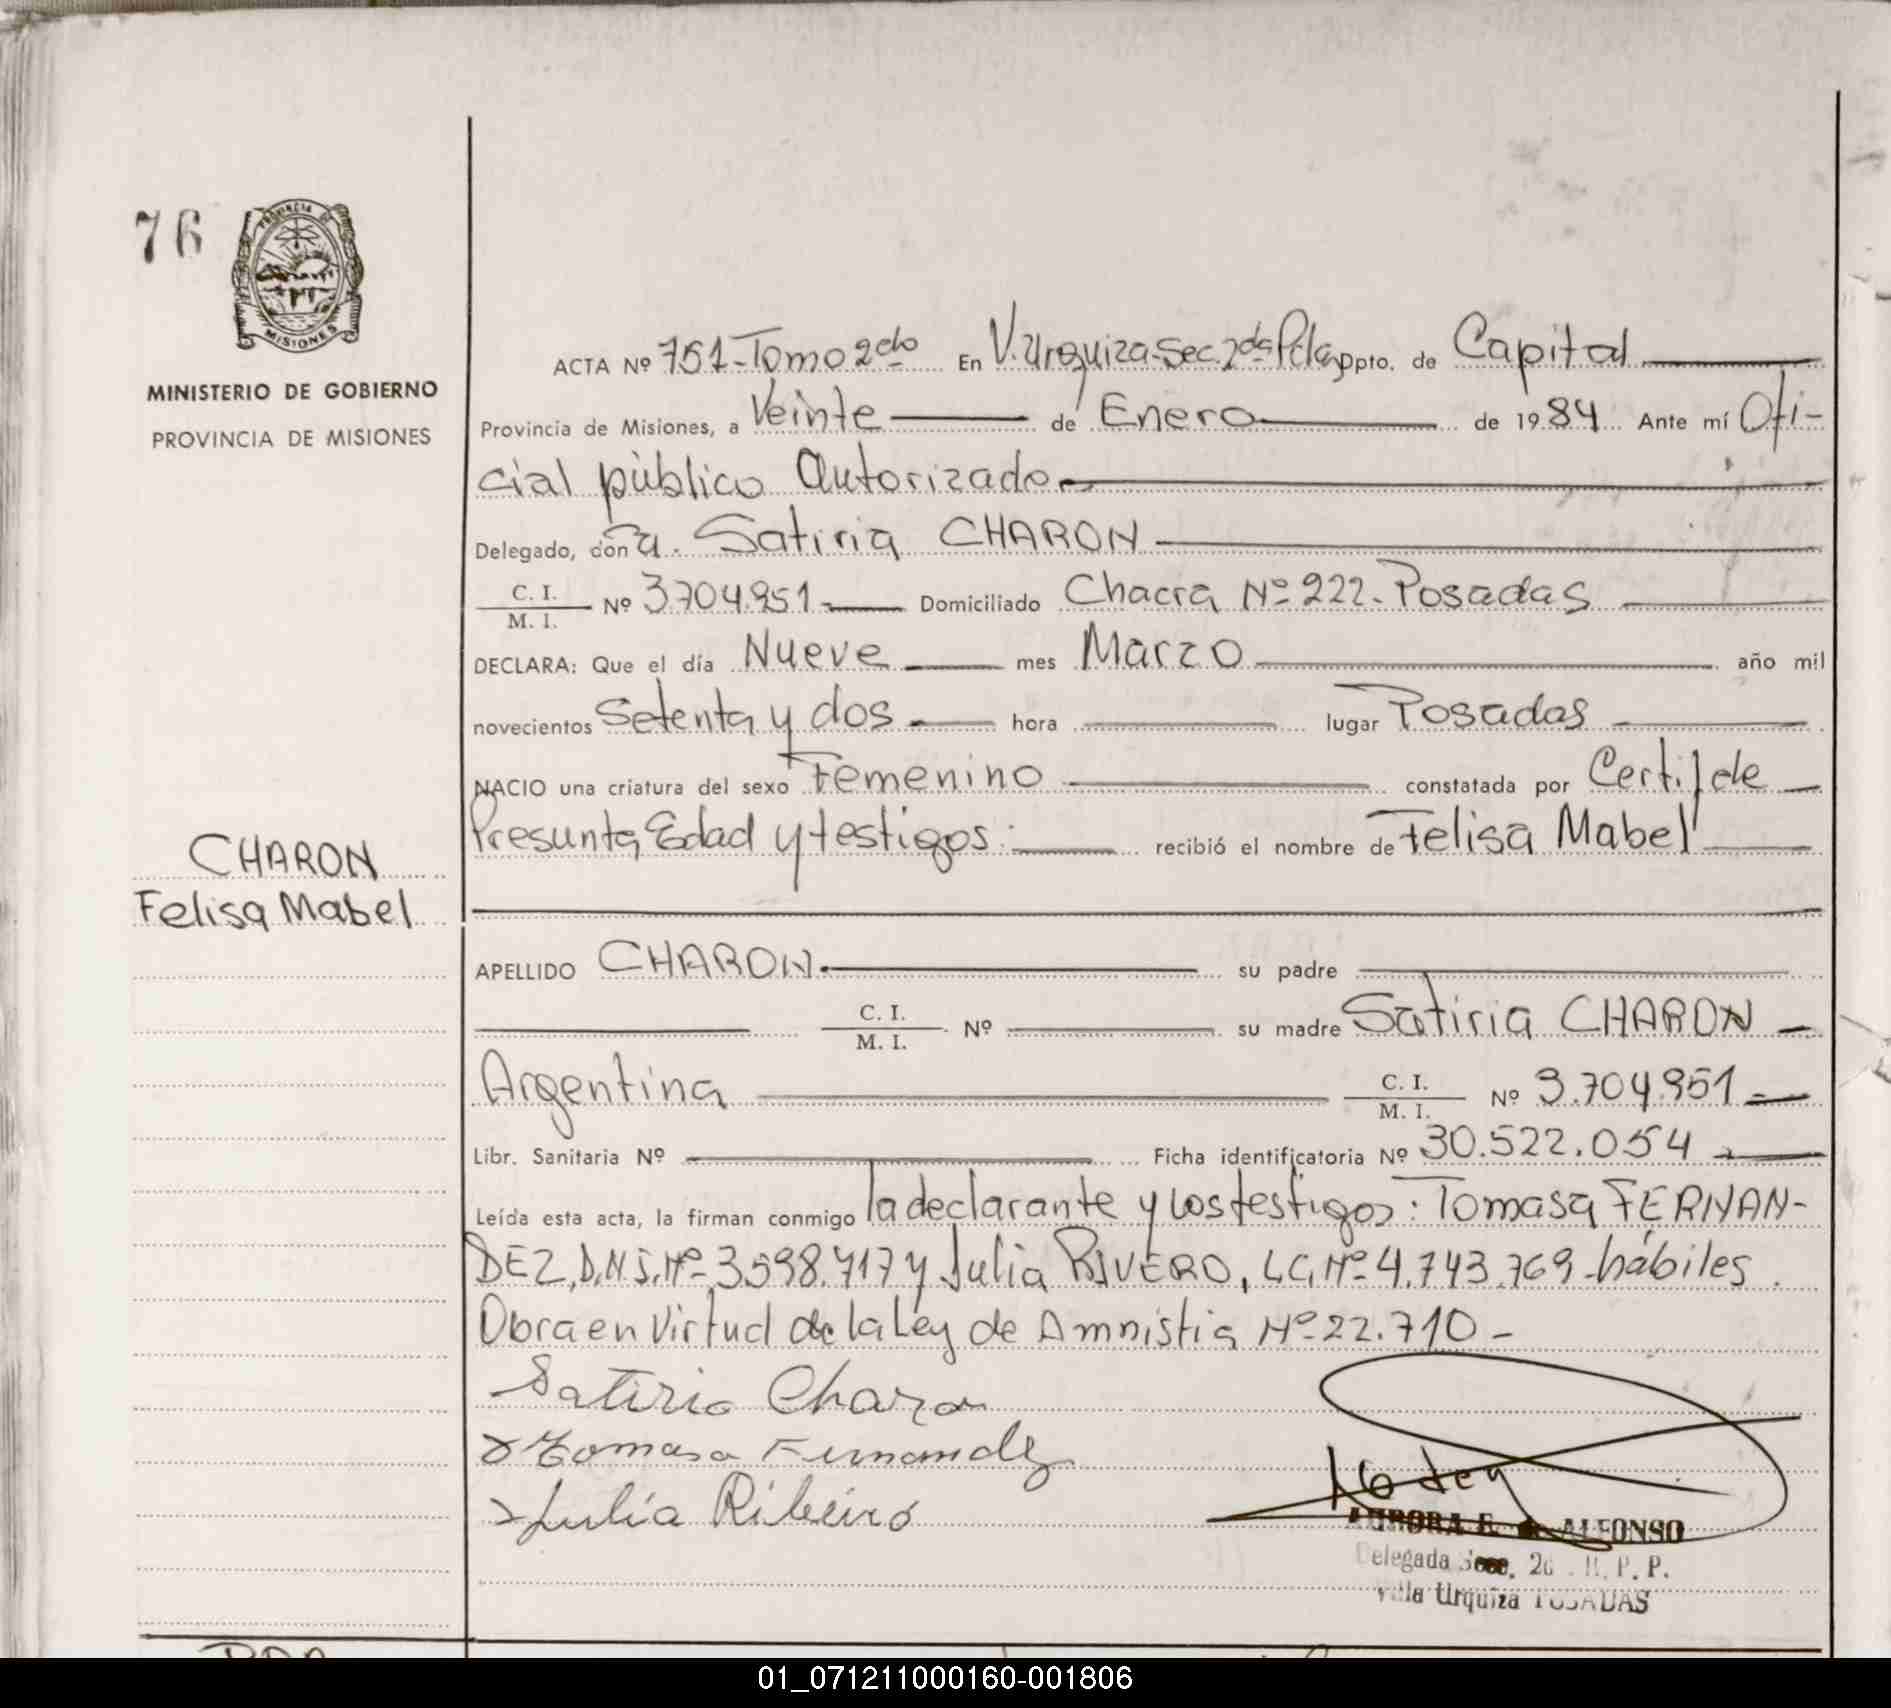 76
PROVINCIA DE
MISIONES
MINISTERIO DE GOBIERNO
PROVINCIA DE MISIONES
CHARON
Felisa Mabel
ACTA Nº 751-Tomo 2do En V. Urquiza-Sec. 2da Pdas Dpto. de Capital
Provincia de Misiones, a Veinte de Enero de 1984 Ante mí Ofi-
cial público Autorizado
Delegado, don ña. Satiria CHARON
C. I.
M. I. Nº 3.704.951 Domiciliado Chacra Nº 222-Posadas
DECLARA: Que el día Nueve mes Marzo año mil
novecientos Setenta y dos hora lugar Posadas
NACIO una criatura del sexo Femenino constatada por Certif de
Presunta Edad y testigos: recibió el nombre de Felisa Mabel
APELLIDO CHARON su padre
C. I.
M. I. Nº su madre Satiria CHARON
Argentina C. I.
M. I. Nº 3.704.951
Libr. Sanitaria Nº Ficha identificatoria Nº 30.522.054
Leída esta acta, la firman conmigo la declarante y los testigos: Tomasa FERNAN-
DEZ, D.N.I. Nº 3.598.717 y Julia RIVERO, LC, Nº 4.743.769-hábiles.
Obra en Virtud de la Ley de Amnistia Nº 22.710-
Satiria Charon
Tomasa Fernandez
Julia Ribeiro
AURORA E. de ALFONSO
Delegada Secc. 2da. R. P. P.
Villa Urquiza POSADAS
01_071211000160-001806